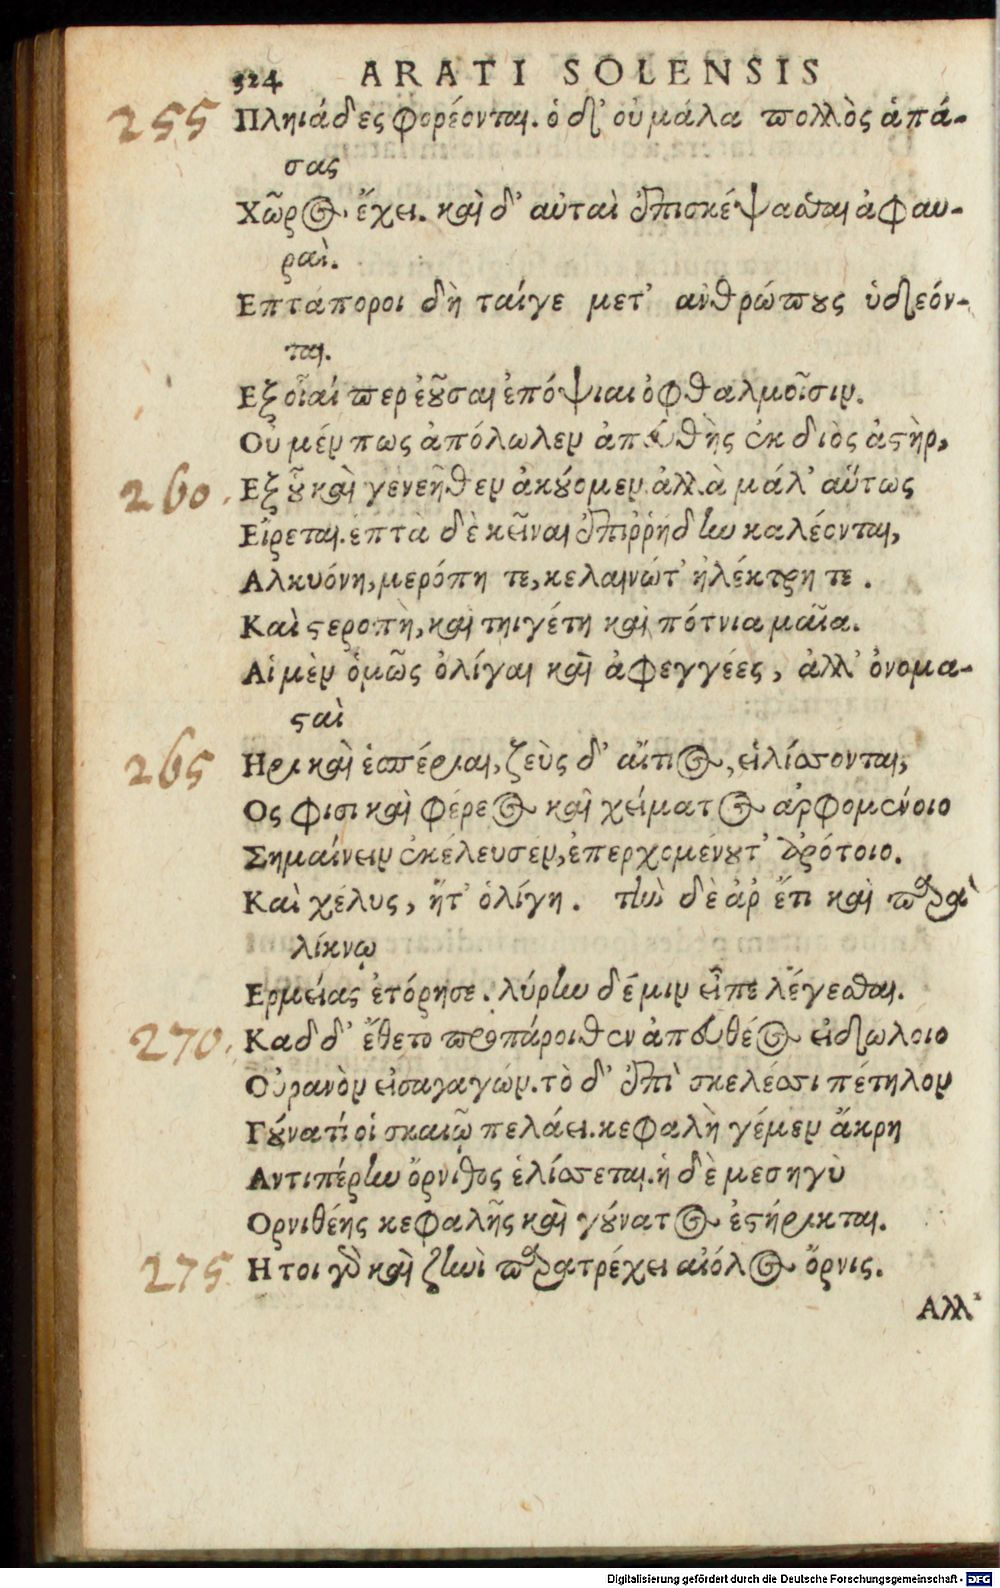 324 ARATI SOLENSIS
255 Πληιάδες φορέονται. ὁ δ᾽ οὐ μάλα πολλὸς ἁπά-
σας
Χῶρος ἔχει. καὶ δ᾽ αὐταὶ ἐπισκέψασθαι ἀφαυ-
ραὶ.
Επτάποροι δὴ ταίγε μετ᾽ ανθρώπους ὑδέον-
ται.
Εξ οἶαί περ ἐοῦσαι ἐπόψιαι ὀφθαλμοῖσιν.
Οὐ μέν πως ἀπόλωλεν ἀπευθὴς ἐκ διὸς ἀστὴρ,
260 Εξ οὗ καὶ γενεῆθεν ἀκούομεν. ἀλλὰ μάλ᾽ αὕτως
Εἴρεται. ἑπτὰ δὲ κεῖναι ἐπιῤῥήδην καλέονται,
Αλκυόνη, μερόπη τε, κελαινώτ᾽ ἠλέκτρη τε.
Καὶ στεροπὴ, καὶ τηιγέτη καὶ πότνια μαῖα.
Αἱ μὲν ὁμῶς ὀλίγαι καὶ ἀφεγγέες, ἀλλ᾽ ὀνομα-
σταὶ
265 Ηρι καὶ ἑσπέριαι, ζεὺς δ᾽ αἴτιος, εἱλίσσονται,
Ος φισι καὶ φέρεος καὶ χείματος αρφομένοιο
Σημαίνειν ἐκέλευσεν, ἐπερχομένουτ᾽ ἀρότοιο.
Καὶ χέλυς, ἥτ᾽ ὀλίγη. τὴν δὲ ἀρ ἔτι καὶ παρὰ
λίκνῳ
Ερμείας ἐτόρησε. λύρην δέ μιν εἶπε λέγεσθαι.
270 Καδ δ᾽ ἔθετο προπάροιθεν ἀπευθέος εἰδώλοιο
Οὐρανὸν εἰσαγαγών. τὸ δ᾽ ἐπὶ σκελέεσσι πέτηλον
Γούνατί οἱ σκαιῷ πελάει. κεφαλὴ γέμεν ἄκρη
Αντιπέρην ὄρνιθος ἑλίσσεται. ἡ δὲ μεσηγὺ
Ορνιθέης κεφαλῆς καὶ γούνατος ἐστήρικται.
275 Ητοι γὰρ καὶ ζηνὶ παρατρέχει αἰόλος ὄρνις.
Αλλ᾽
Digitalisierung gefördert durch die Deutsche Forschungsgemeinschaft - DFG